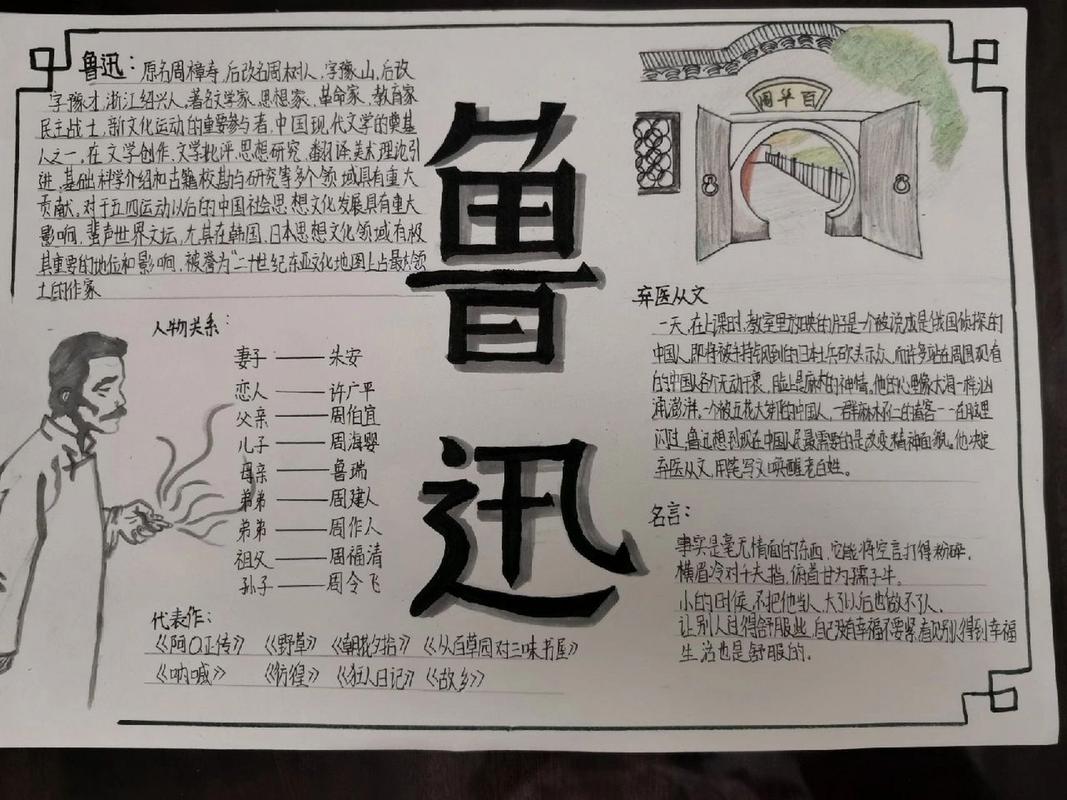 鲁迅：原名周樟寿，后改名周树人，字豫山，后改
字豫才，浙江绍兴人。著名文学家、思想家、革命家、教育家
民主战士，新文化运动的重要参与者，中国现代文学的奠基
人之一。在文学创作、文学批评、思想研究、翻译、美术理论引
进、基础科学介绍和古籍校勘与研究等多个领域具有重大
贡献。对于五四运动以后的中国社会思想文化发展具有重大
影响，蜚声世界文坛，尤其在韩国、日本思想文化领域有极
其重要的地位和影响，被誉为“二十世纪东亚文化地图上占最大领
土的作家
人物关系：
妻子——朱安
恋人——许广平
父亲——周伯宜
儿子——周海婴
母亲——鲁瑞
弟弟——周建人
弟弟——周作人
祖父——周福清
孙子——周令飞
代表作：
《阿Q正传》 《野草》 《朝花夕拾》 《从百草园对三味书屋》
《呐喊》 《彷徨》 《狂人日记》 《故乡》
鲁
迅
园草百
弃医从文
一天，在上课时，教室里放映的片是一个被说成是俄国侦探的
中国人，即将被手持的日本士兵砍头示众，而许多站在周围观看
的中国人各个无动于衷，脸上是麻木的神情。他的心里像大海一样汹
涌澎湃，一个被五花大绑的中国人，一群麻木不仁的看客——在脑里
闪过，鲁迅想到现在中国人民最需要的是改变精神面貌。他决定
弃医从文，用笔写文唤醒老百姓。
名言：
事实是毫无情面的东西，它能将空言打得粉碎。
横眉冷对千夫指，俯首甘为孺子牛。
小的时候，不把他当人，大了以后也做不了人。
让别人过得舒服些，自己没有幸福不要紧，看见别人得到幸福
生活也是舒服的。